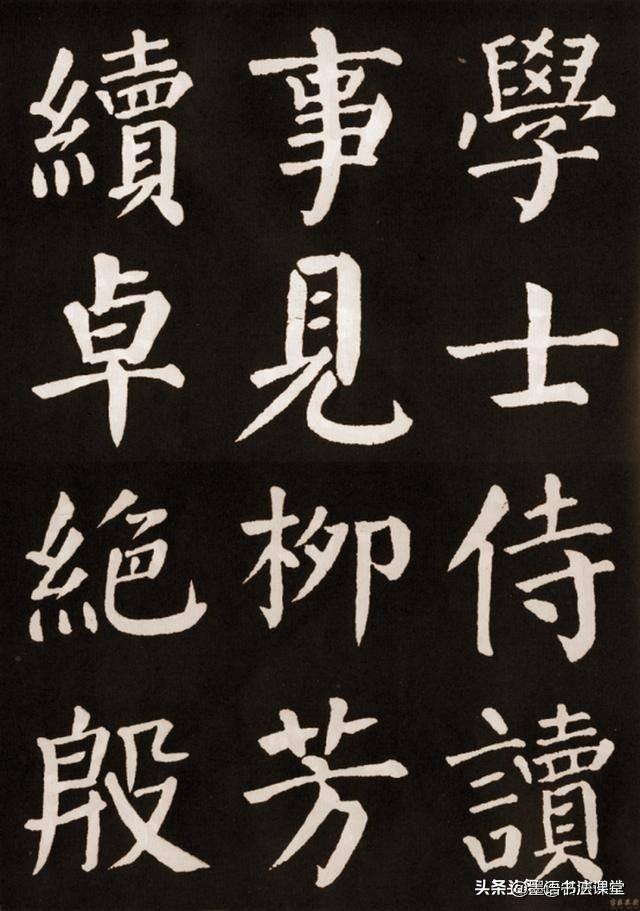 學士侍讀
事見柳芳
續卓絶殷
头条 @墨语书法课堂